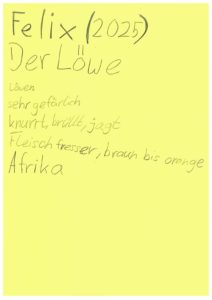 Felix (2025)
Der Löwe
Löwen
sehr gefärlich
knurrt, brüllt, jagt
Fleisch fresser, braun bis orange
Afrika